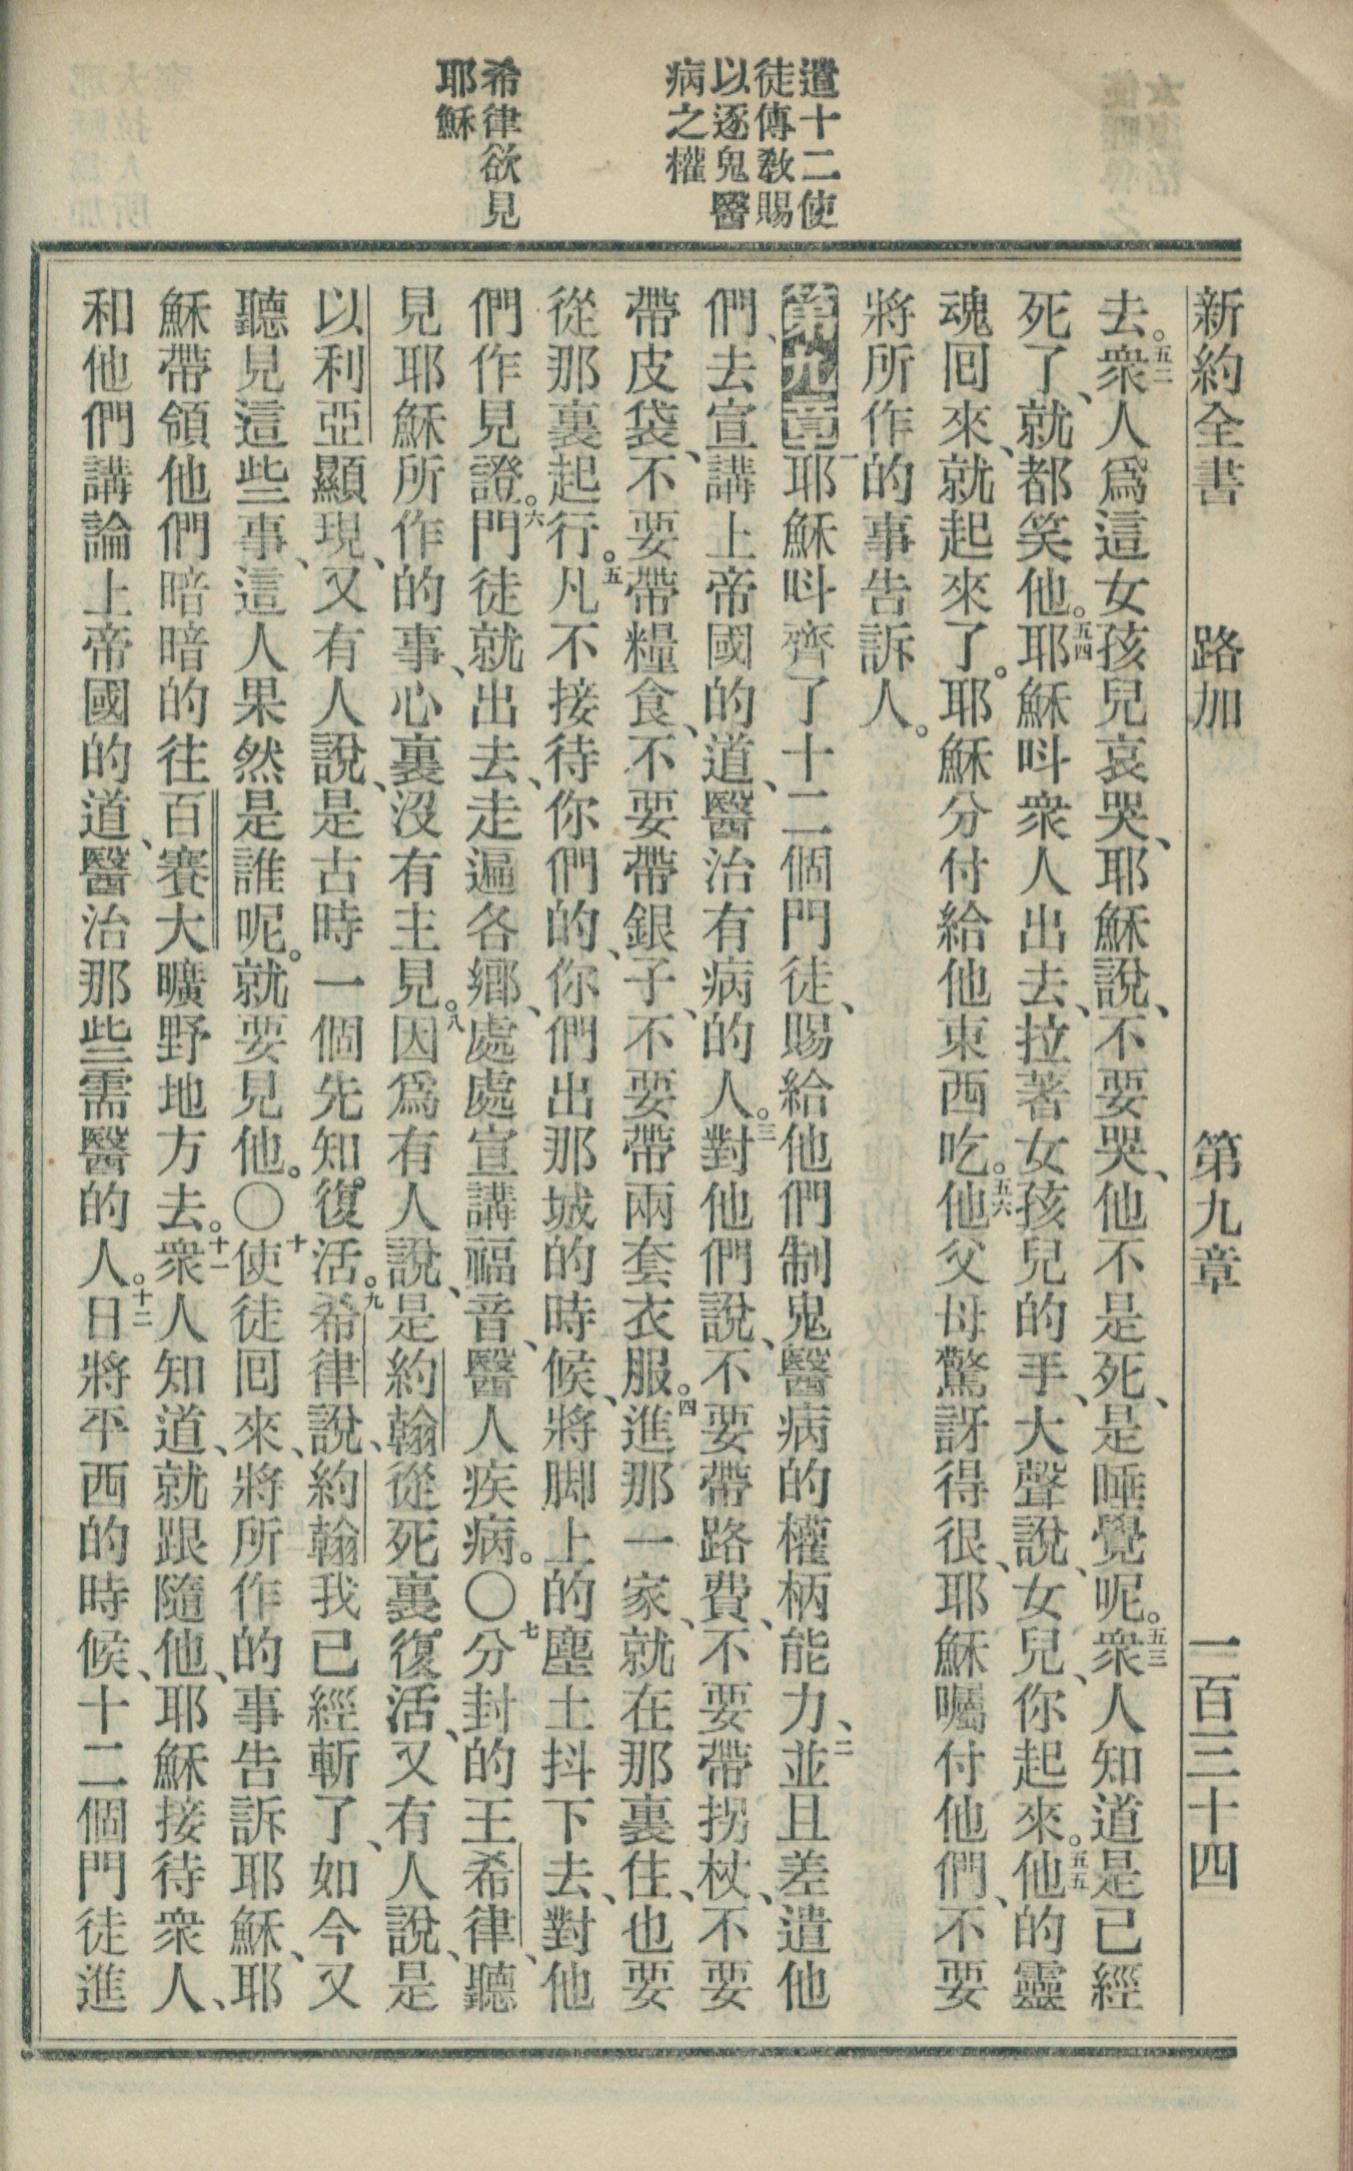 新約全書　路加　第九章　一百三十四
遣十二使
徒傳敎賜
以逐鬼醫
病之權
希律欲見
耶穌
去。五二衆人爲這女孩兒哀哭、耶穌說、不要哭、他不是死、是睡覺呢。五三衆人知道是已經
死了、就都笑他。五四耶穌呌衆人出去、拉著女孩兒的手、大聲說、女兒、你起來。五五他的靈
魂囘來、就起來了。耶穌分付給他東西吃。五六他父母驚訝得很、耶穌囑付他們、不要
將所作的事告訴人。
第九章一耶穌呌齊了十二個門徒、賜給他們制鬼醫病的權柄能力、二並且差遣他
們、去宣講上帝國的道、醫治有病的人。三對他們說、不要帶路費、不要帶拐杖、不要
帶皮袋、不要帶糧食、不要帶銀子、不要帶兩套衣服。四進那一家、就在那裏住、也要
從那裏起行。五凡不接待你們的、你們出那城的時候、將脚上的塵土抖下去、對他
們作見證。六門徒就出去、走遍各鄉、處處宣講福音、醫人疾病。〇七分封的王希律、聽
見耶穌所作的事、心裏沒有主見。八因爲有人說、是約翰從死裏復活、又有人說、是
以利亞顯現、又有人說、是古時一個先知復活。九希律說、約翰我已經斬了、如今又
聽見這些事、這人果然是誰呢。就要見他。〇十使徒囘來、將所作的事告訴耶穌、耶
穌帶領他們暗暗的往百賽大曠野地方去。十一衆人知道、就跟隨他、耶穌接待衆人、
和他們講論上帝國的道、醫治那些需醫的人。十二日將平西的時候、十二個門徒進